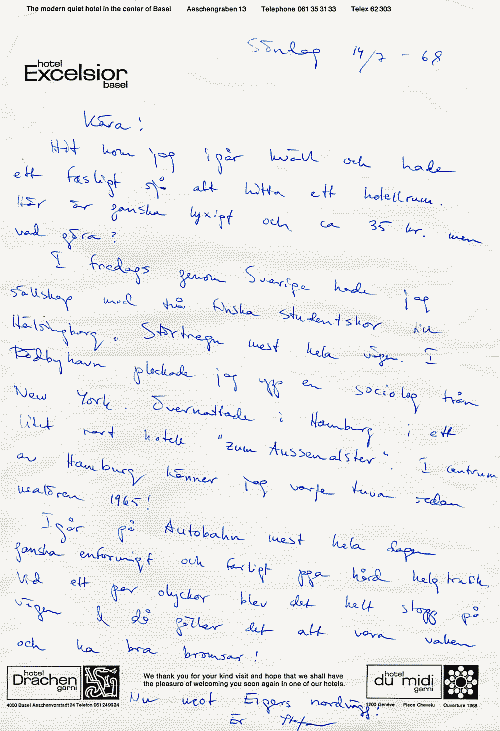 The modern quiet hotel in the center of Basel Aeschengraben 13 Telephone 061 35 31 33 Telex 62 303
hotel
Excelsior
basel
Söndag 14/7 - 68
Kära!
Hit kom jag igår kväll och hade
ett fasligt sjå att hitta ett hotellrum.
Här är ganska lyxigt och ca 35 kr. men
vad göra?
I fredags genom Sverige hade jag
sällskap med två finska studentskor till
Hälsingborg. Störtregn mest hela vägen. I
Rödbyhavn plockade jag upp en sociolog från
New York. Övernattade i Hamburg i ett
litet rart hotell "Zum Aussenalster". I centrum
av Hamburg känner jag varje tuva sedan
1965!
Igår på Autobahn mest hela dagen
ganska enformigt och farligt pga hård helgtrafik.
Vid ett par olyckor blev det helt stopp på
vägen & då gäller det att vara vaken
och ha bra bromsar!
hotel
Drachen
garni
4000 Basel Aeschenvorstadt 24 Telefon 061 24 90 24
We thank you for your kind visit and hope that we shall have
the pleasure of welcoming you soon again in one of our hotels.
hotel
du midi
garni
1200 Genève Place Chevelu Ouverture 1968
Nu mot Eigers nordvägg!
Er